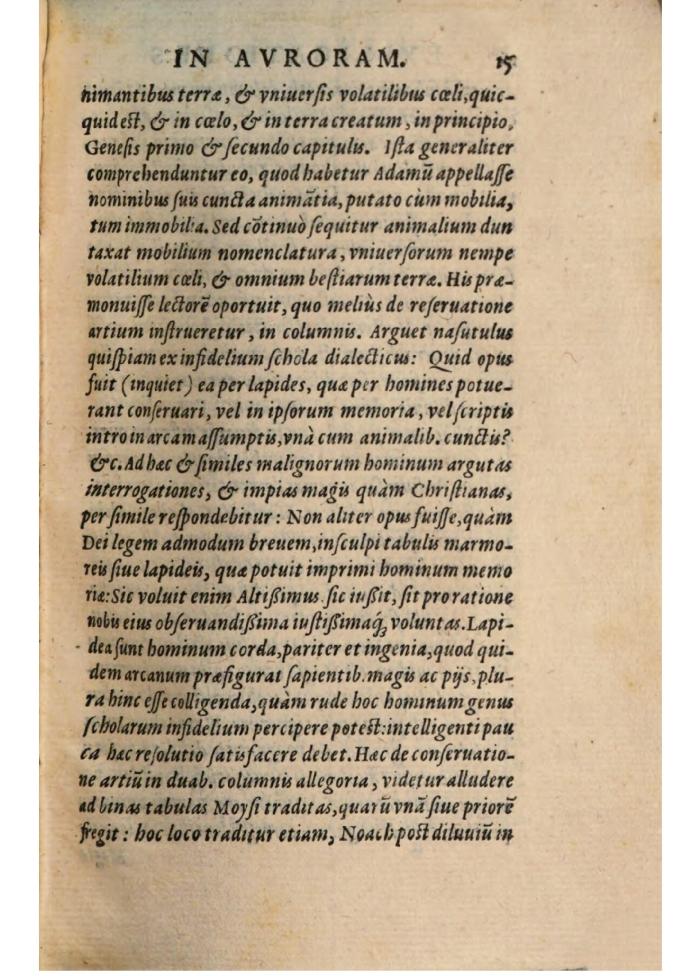 IN AVRORAM. 15
nimantibus terræ, & vniuersis volatilibus cœli, quic-
quid est, & in cœlo, & in terra creatum, in principio,
Genesis primo & secundo capitulis. Ista generaliter
comprehenduntur eo, quod habetur Adamū appellasse
nominibus suis cuncta animātia, putato cùm mobilia,
tum immobilia. Sed cōtinuò sequitur animalium dun
taxat mobilium nomenclatura, vniuersorum nempe
volatilium cœli, & omnium bestiarum terræ. His præ-
monuisse lectorē oportuit, quo meliùs de reseruatione
artium instrueretur, in columnis. Arguet nasutulus
quispiam ex infidelium schola dialecticus: Quid opus
fuit (inquiet) ea per lapides, quæ per homines potue-
rant conseruari, vel in ipsorum memoria, vel scriptis
intro in arcam assumptis, vnà cum animalib. cunctis?
&c. Ad hæc & similes malignorum hominum argutas
interrogationes, & impias magis quàm Christianas,
per simile respondebitur: Non aliter opus fuisse, quàm
Dei legem admodum breuem, insculpi tabulis marmo-
reis siue lapideis, quæ potuit imprimi hominum memo
riæ: Sic voluit enim Altißimus sic iußit, sit pro ratione
nobis eius obseruandißima iustißimaq́; voluntas. Lapi-
dea sunt hominum corda, pariter et ingenia, quod qui-
dem arcanum præfigurat sapientib. magis ac pijs, plu-
ra hinc esse colligenda, quàm rude hoc hominum genus
scholarum infidelium percipere potest: intelligenti pau
ca hæc resolutio satisfacere debet. Hæc de conseruatio-
ne artiū in duab. columnis allegoria, videtur alludere
ad binas tabulas Moysi traditas, quarū vnā siue priorē
fregit: hoc loco traditur etiam, Noach post diluuiū in